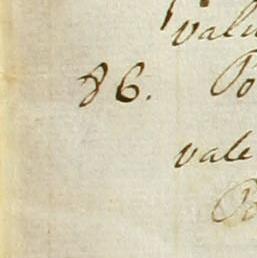 valu
86. Po
vale